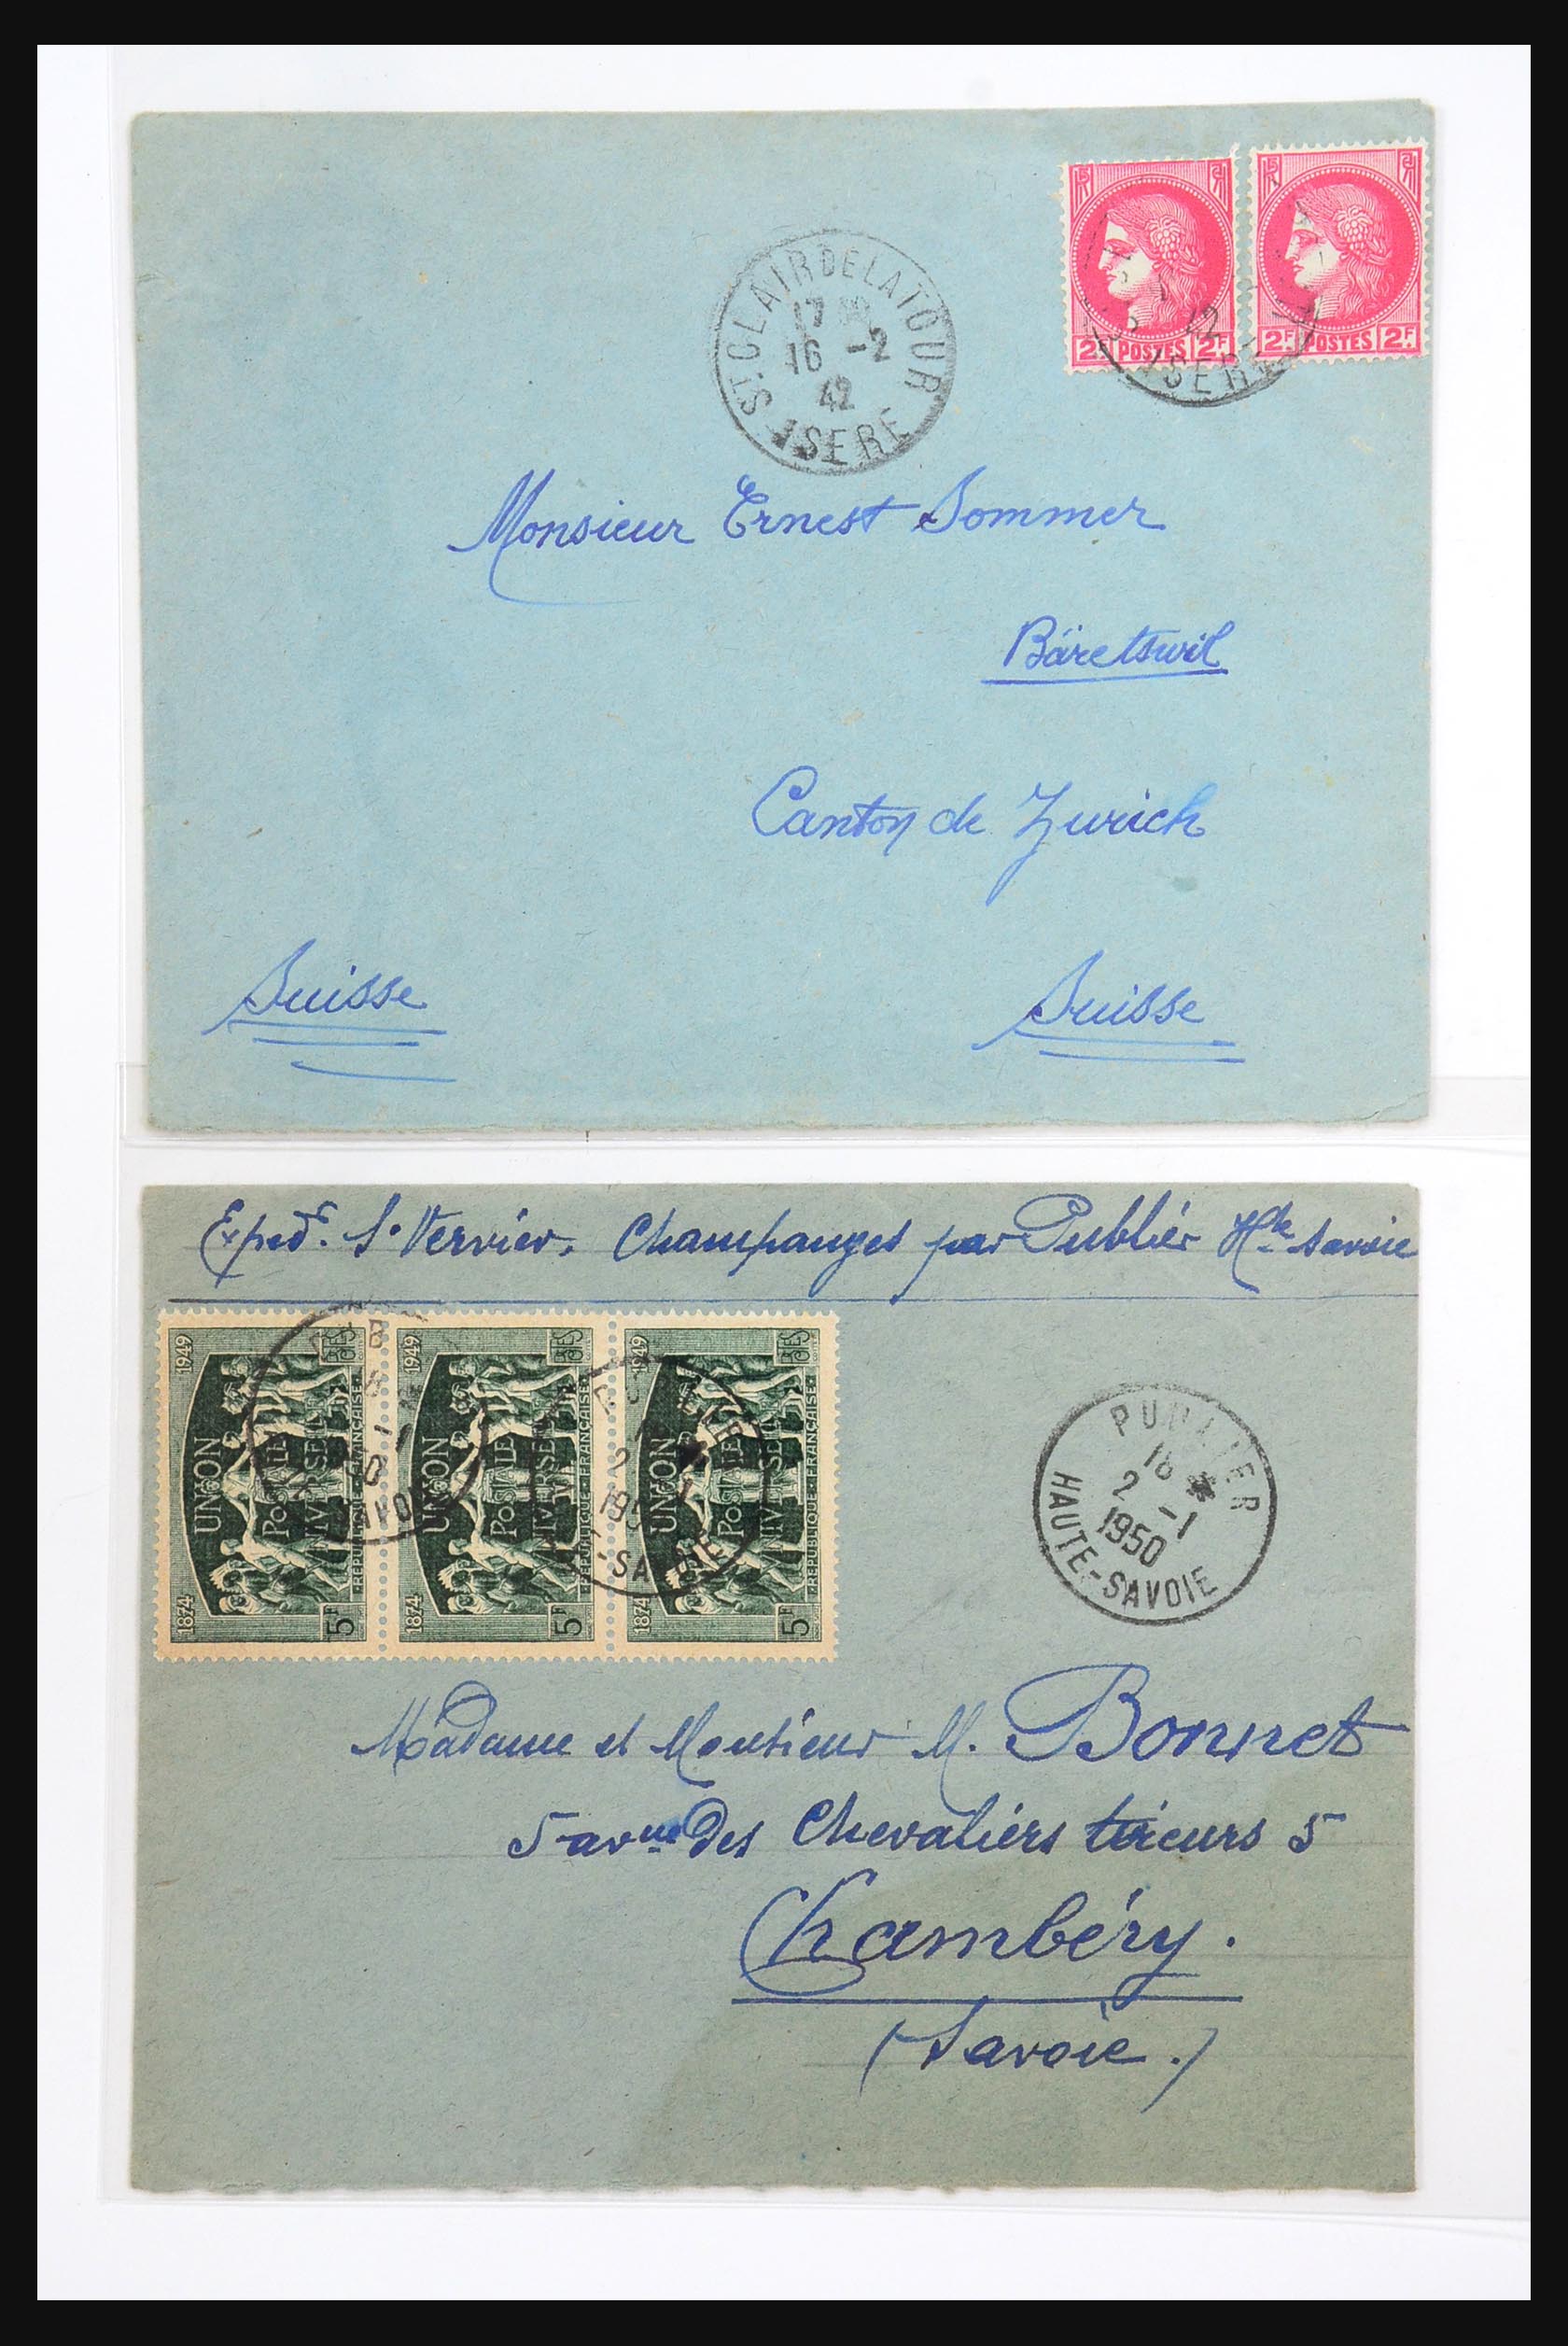 RF
RF
2F POSTES 2F
2F POSTES 2F
ST. CLAIR DE LA TOUR
17
16 -2
42
ISERE
ISERE
Monsieur Ernest Sommer
Bäretswil
Canton de Zurich
Suisse
Suisse
Expedr. Champanges par Publier Hte Savoie
1874 1949
UNION
POSTALE
UNIVERSELLE
REPUBLIQUE-FRANÇAISE
5F
1874 1949
UNION
POSTALE
UNIVERSELLE
REPUBLIQUE-FRANÇAISE
5F
1874 1949
UNION
POSTALE
UNIVERSELLE
REPUBLIQUE-FRANÇAISE
5F
PUBLIER
16
2 -1
1950
HAUTE-SAVOIE
Madame et Monsieur M. Bonnet
5 avnue des Chevaliers tireurs 5
Chambéry.
(Savoie.)